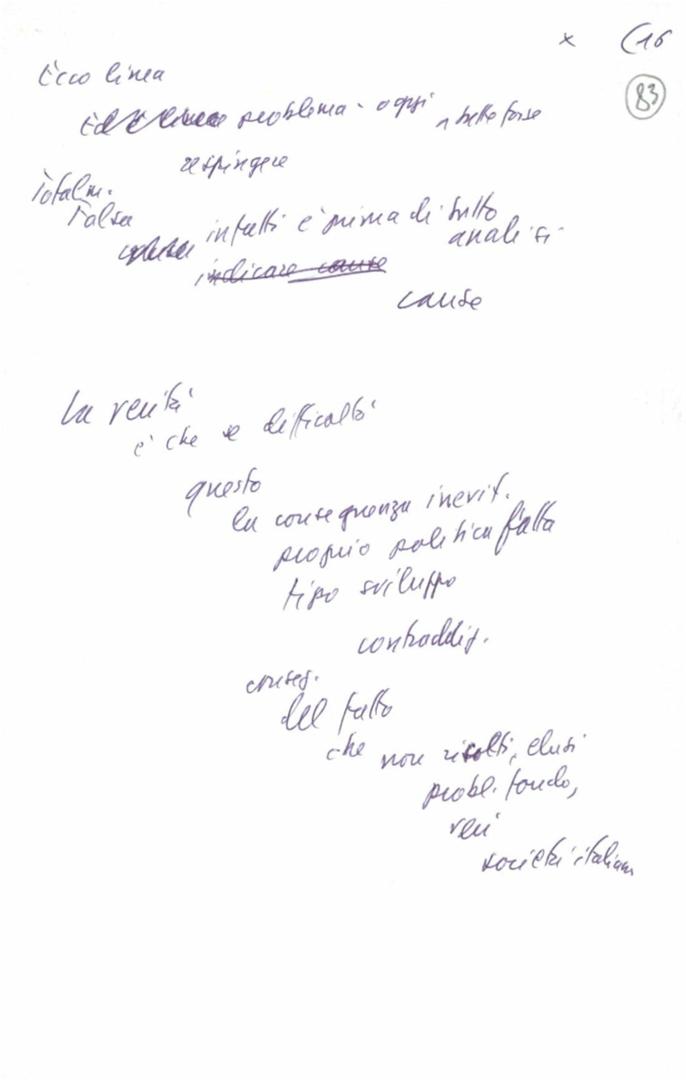 x (16
83
Ecco linea
problema - oggi
tutte forze
respingere
Totalm.
Falsa
infatti è prima di tutto
analisi
indicare cause
cause
La verità
è che se difficoltà
questo
la conseguenza inevit.
proprio politica fatta
tipo sviluppo
contraddit.
conseg.
del fatto
che non risolti, elusi
probl. fondo,
veri
società italiana